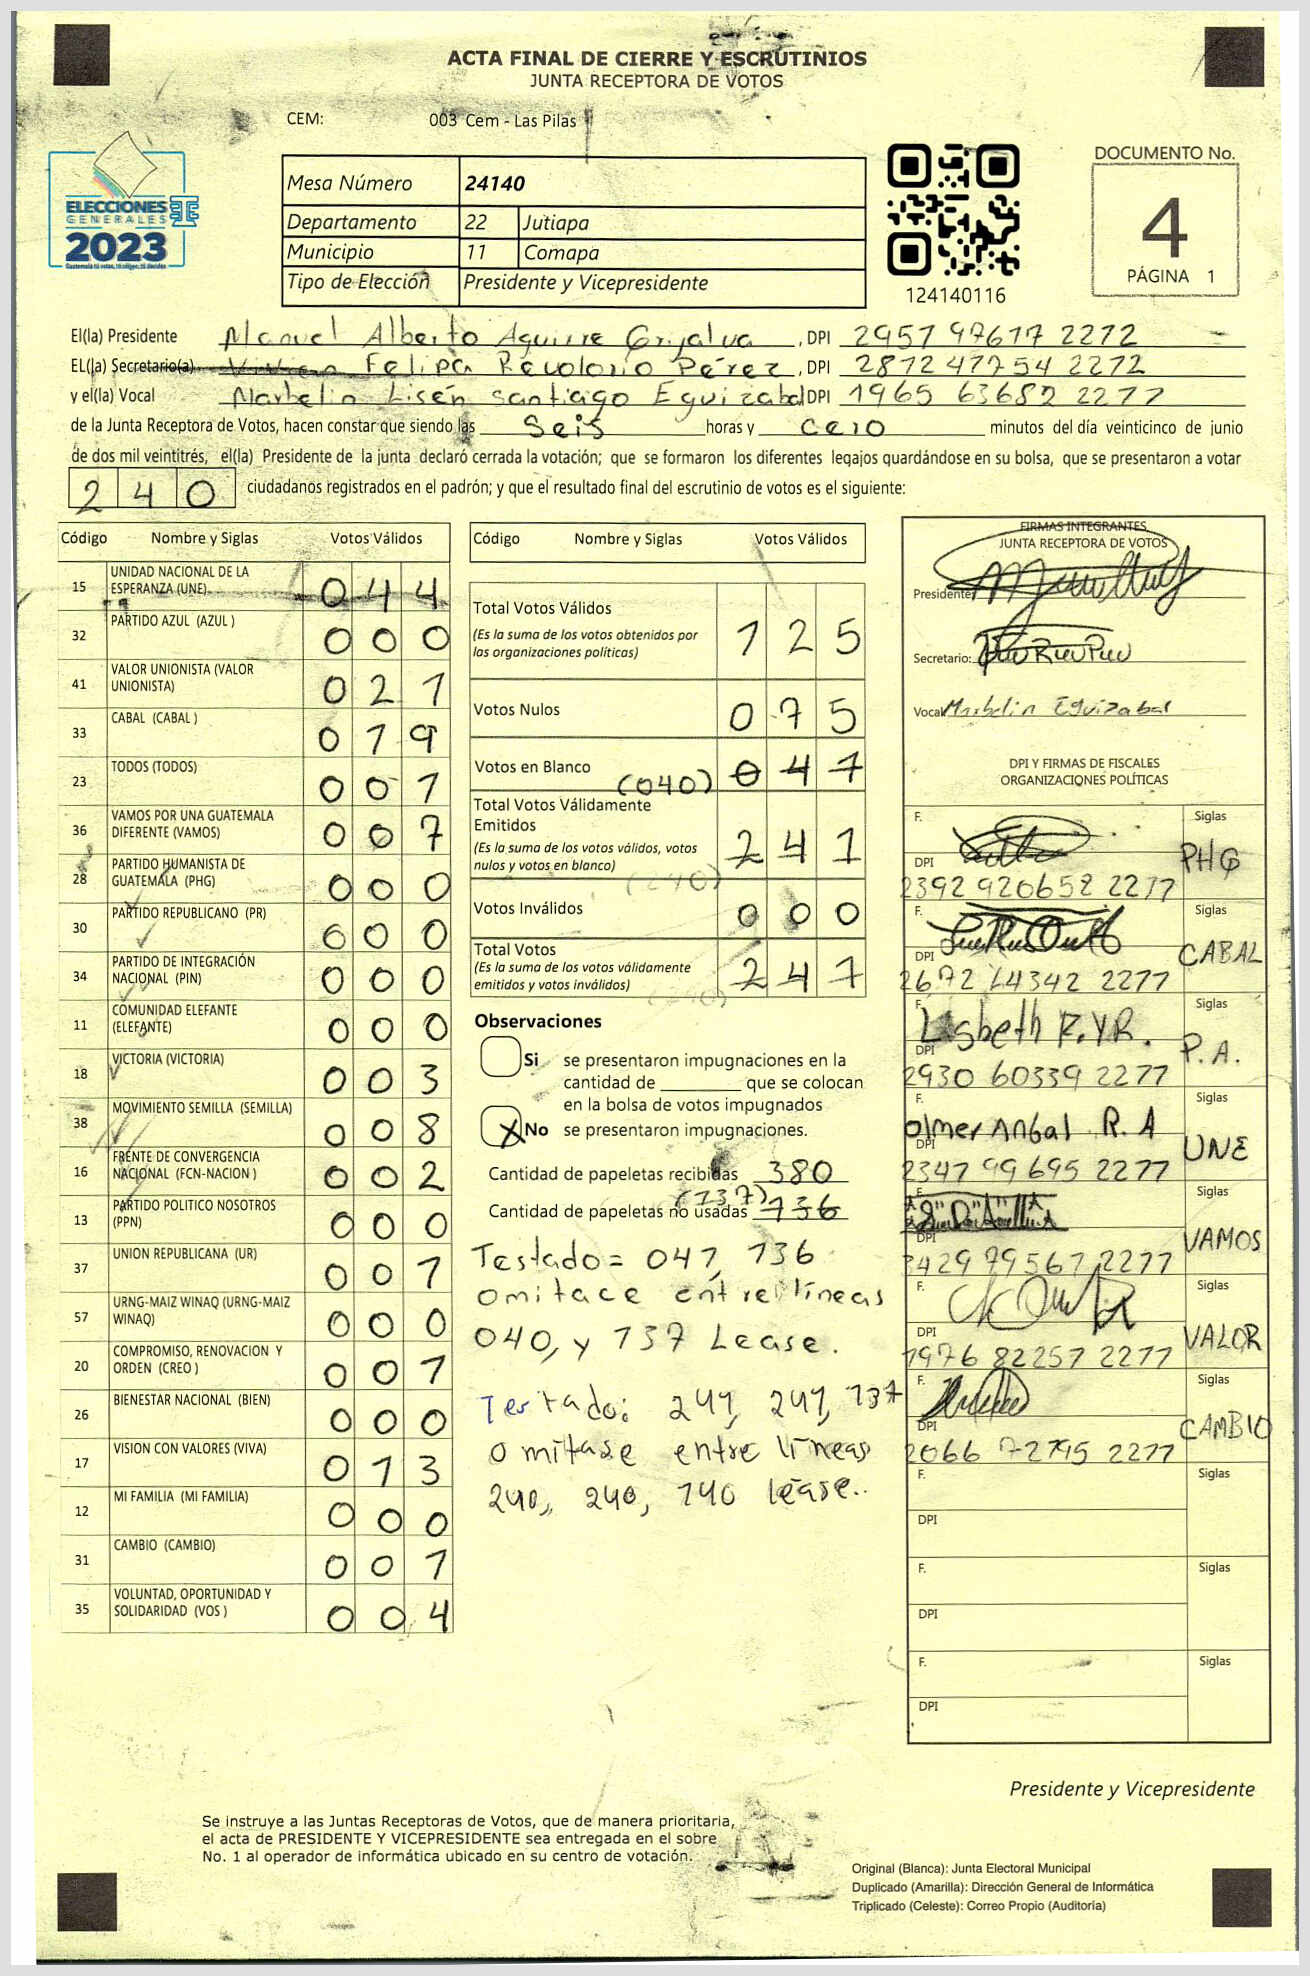 ACTA FINAL DE CIERRE Y ESCRUTINIOS
JUNTA RECEPTORA DE VOTOS
CEM: 003 Cem - Las Pilas
ELECCIONES
GENERALES
2023
Mesa Número 24140
Departamento 22 Jutiapa
Municipio 11 Comapa
Tipo de Elección Presidente y Vicepresidente
124140116
DOCUMENTO No.
4
PÁGINA 1
El(la) Presidente Manuel Alberto Aguirre Grijalva, DPI 2957 97617 2272
EL(la) Secretario(a) Felipa Revolorio Pérez, DPI 2872 47754 2272
y el(la) Vocal Marbelin Lisén Santiago Eguizabal DPI 1965 63682 2277
de la Junta Receptora de Votos, hacen constar que siendo las Seis horas y cero minutos del día veinticinco de junio
de dos mil veintitrés, el(la) Presidente de la junta declaró cerrada la votación; que se formaron los diferentes legajos guardándose en su bolsa, que se presentaron a votar
240 ciudadanos registrados en el padrón; y que el resultado final del escrutinio de votos es el siguiente:
Código Nombre y Siglas Votos Válidos
15 UNIDAD NACIONAL DE LA ESPERANZA (UNE) 044
32 PARTIDO AZUL (AZUL ) 000
41 VALOR UNIONISTA (VALOR UNIONISTA) 021
33 CABAL (CABAL ) 019
23 TODOS (TODOS) 001
36 VAMOS POR UNA GUATEMALA DIFERENTE (VAMOS) 007
28 PARTIDO HUMANISTA DE GUATEMALA (PHG) 000
30 PARTIDO REPUBLICANO (PR) 000
34 PARTIDO DE INTEGRACIÓN NACIONAL (PIN) 000
11 COMUNIDAD ELEFANTE (ELEFANTE) 000
18 VICTORIA (VICTORIA) 003
38 MOVIMIENTO SEMILLA (SEMILLA) 008
16 FRENTE DE CONVERGENCIA NACIONAL (FCN-NACION ) 002
13 PARTIDO POLITICO NOSOTROS (PPN) 000
37 UNION REPUBLICANA (UR) 001
57 URNG-MAIZ WINAQ (URNG-MAIZ WINAQ) 000
20 COMPROMISO, RENOVACION Y ORDEN (CREO ) 001
26 BIENESTAR NACIONAL (BIEN) 000
17 VISION CON VALORES (VIVA) 013
12 MI FAMILIA (MI FAMILIA) 000
31 CAMBIO (CAMBIO) 001
35 VOLUNTAD, OPORTUNIDAD Y SOLIDARIDAD (VOS ) 004
Código Nombre y Siglas Votos Válidos
Total Votos Válidos 125
(Es la suma de los votos obtenidos por
las organizaciones políticas)
Votos Nulos 075
Votos en Blanco (040) 041
Total Votos Válidamente
Emitidos
(Es la suma de los votos válidos, votos
nulos y votos en blanco) 241
(240)
Votos Inválidos 000
Total Votos
(Es la suma de los votos válidamente
emitidos y votos inválidos) 241
(240)
Observaciones
Si se presentaron impugnaciones en la
cantidad de ________ que se colocan
en la bolsa de votos impugnados
X No se presentaron impugnaciones.
Cantidad de papeletas recibidas 380
(137)
Cantidad de papeletas no usadas 136
Testado= 041, 136
omitace entre líneas
040, y 137 Lease.
Testado: 241, 241, 137
omitase entre líneas
240, 240, 140 lease..
FIRMAS INTEGRANTES
JUNTA RECEPTORA DE VOTOS
Presidente:
Secretario:
Vocal Marbelin Eguizabal
DPI Y FIRMAS DE FISCALES
ORGANIZACIONES POLÍTICAS
F. Siglas
DPI PHG
2392 920652 2277
F. Siglas
DPI CABAL
2672 14342 2277
F. Siglas
Lisbeth F.Y.R.
DPI P.A.
2930 60339 2277
F. Siglas
olmer Anbal R. A
DPI UNE
2347 99695 2277
F. Siglas
DPI VAMOS
3429 79567 2277
F. Siglas
DPI VALOR
1976 82257 2277
F. Siglas
DPI CAMBIO
2066 72795 2277
F. Siglas
DPI
F. Siglas
DPI
F. Siglas
DPI
Presidente y Vicepresidente
Se instruye a las Juntas Receptoras de Votos, que de manera prioritaria,
el acta de PRESIDENTE Y VICEPRESIDENTE sea entregada en el sobre
No. 1 al operador de informática ubicado en su centro de votación.
Original (Blanca): Junta Electoral Municipal
Duplicado (Amarilla): Dirección General de Informática
Triplicado (Celeste): Correo Propio (Auditoría)